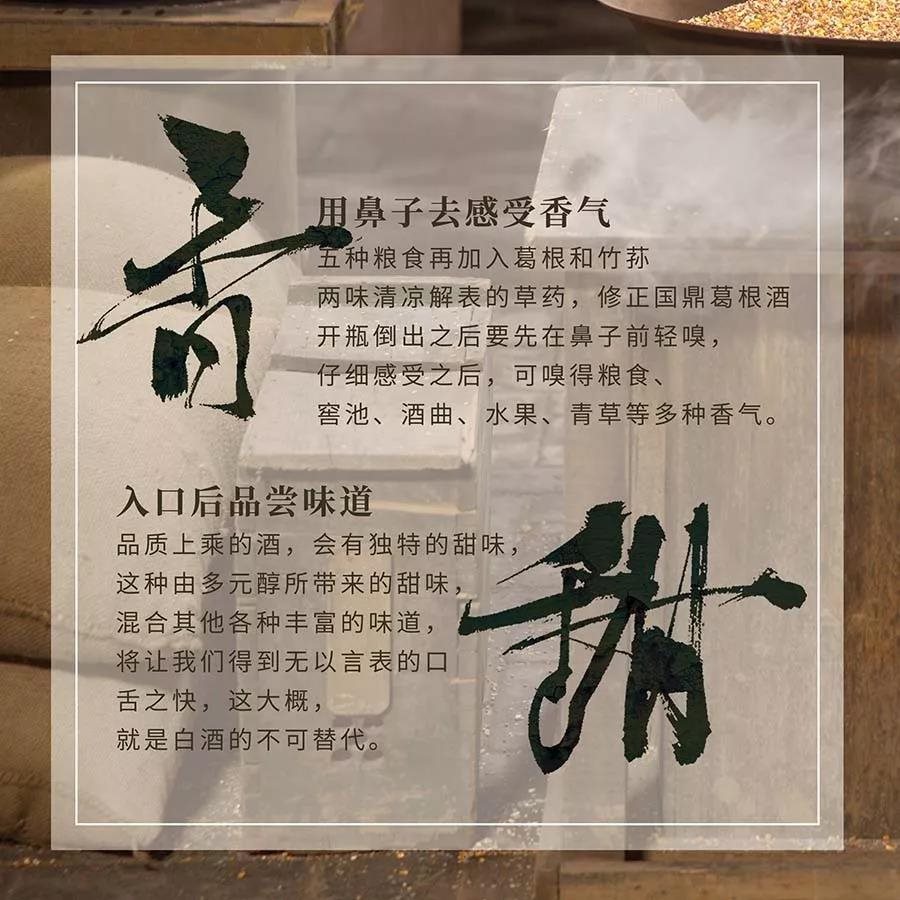 香
用鼻子去感受香气
五种粮食再加入葛根和竹荪
两味清凉解表的草药，修正国鼎葛根酒
开瓶倒出之后要先在鼻子前轻嗅，
仔细感受之后，可嗅得粮食、
窖池、酒曲、水果、青草等多种香气。
入口后品尝味道
品质上乘的酒，会有独特的甜味，
这种由多元醇所带来的甜味，
混合其他各种丰富的味道，
将让我们得到无以言表的口
舌之快，这大概，
就是白酒的不可替代。
甜